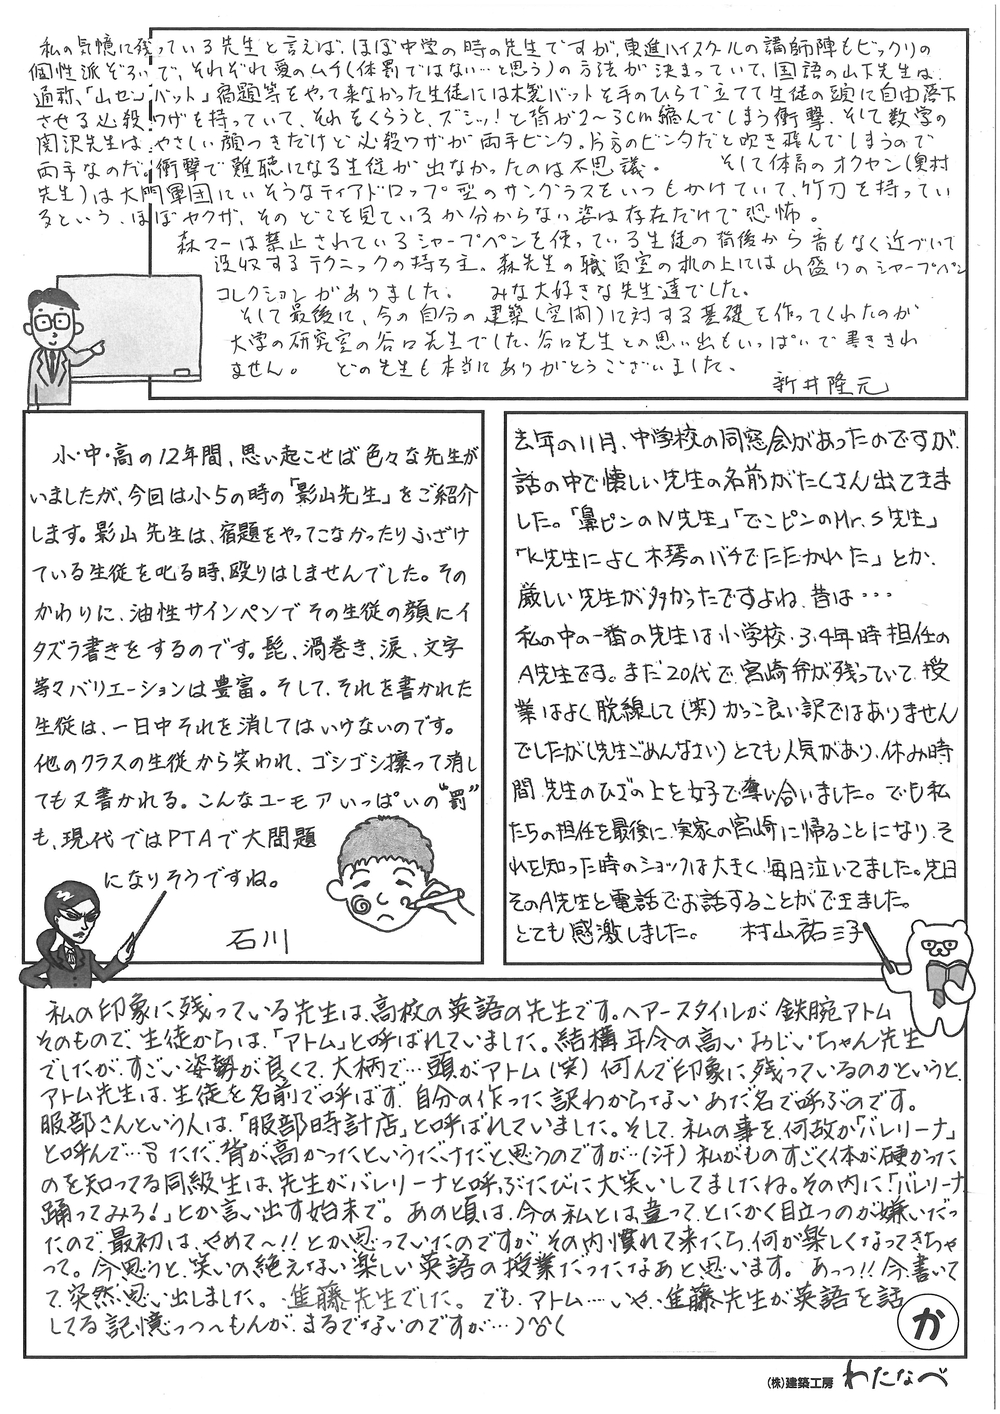 私の気憶に残っている先生と言えば、ほぼ中学の時の先生ですが、東進ハイスクールの講師陣もビックリの
個性派ぞろいで、それぞれ愛のムチ(体罰ではない…と思う)の方法が決まっていて、国語の山下先生は、
通称、「山セン バット」宿題等をやって来なかった生徒には木製バットを手のひらで立てて生徒の頭に自由落下
させる必殺ワザを持っていて、それをくらうと、ズシッ!と背が2〜3cm縮んでしまう衝撃。そして数学の
関沢先生はやさしい顔つきだけど必殺ワザが両手ビンタ。片方のビンタだと吹き飛んでしまうので
両手なのだ。衝撃で難聴になる生徒が出なかったのは不思議。 そして体育のオクヤン(奥村
先生)は大門軍団にいそうなティアドロップ型のサングラスをいつもかけていて、竹刀を持ってい
るという、ほぼヤクザ、そのどこを見ているか分からない姿は存在だけで恐怖。
森マーは禁止されているシャープペンを使っている生徒の背後から音もなく近づいて
没収するテクニックの持ち主。森先生の職員室の机の上には山盛りのシャープペン
コレクションがありました。 みな大好きな先生達でした。
そして最後に、今の自分の建築(空間)に対する基礎を作ってくれたのが
大学の研究室の谷口先生でした。谷口先生との思い出もいっぱいで書ききれ
ません。 どの先生も本当にありがとうございました。
新井隆元
小・中・高の12年間、思い起こせば色々な先生が
いましたが、今回は小5の時の「影山先生」をご紹介
します。影山先生は、宿題をやってこなかったりふざけ
ている生徒を叱る時、殴りはしませんでした。その
かわりに、油性サインペンでその生徒の顔にイ
タズラ書きをするのです。髭、渦巻き、涙、文字
等々バリエーションは豊富。そして、それを書かれた
生徒は、一日中それを消してはいけないのです。
他のクラスの生徒から笑われ、ゴシゴシ擦って消し
ても又書かれる。こんなユーモアいっぱいの“罰”
も、現代ではPTAで大問題
になりそうですね。
石川
去年の11月、中学校の同窓会があったのですが、
話の中で懐しい先生の名前がたくさん出てきま
した。「鼻ピンのN先生」「でこピンのMr.S先生」
「K先生によく木琴のバチでたたかれた」とか、
厳しい先生が多かったですよね、昔は・・・
私の中の一番の先生は小学校・3・4年時担任の
A先生です。まだ20代で、宮崎弁が残っていて、授
業はよく脱線して(笑)かっこ良い訳ではありません
でしたが(先生ごめんなさい)とても人気があり、休み時
間、先生のひざの上を女子で奪い合いました。でも私
たちの担任を最後に、実家の宮崎に帰ることになり、そ
れを知った時のショックは大きく、毎日泣いてました。先日
そのA先生と電話でお話することができました。
とても感激しました。 村山祐三子
私の印象に残っている先生は、高校の英語の先生です。ヘアースタイルが鉄腕アトム
そのもので、生徒からは、「アトム」と呼ばれていました。結構年令の高いおじいちゃん先生
でしたが、すごい姿勢が良くて、大柄で…頭がアトム(笑)何んで印象に残っているのかというと、
アトム先生は、生徒を名前で呼ばず、自分の作った訳わからないあだ名で呼ぶのです。
服部さんという人は、「服部時計店」と呼ばれていました。そして、私の事を何故か「バレリーナ」
と呼んで… ただ、背が高かったというだけだと思うのですが…(汗)私がものすごく体が硬かった
のを知ってる同級生は、先生がバレリーナと呼ぶたびに大笑いしてましたね。その内に「バレリーナ
踊ってみろ!」とか言い出す始末で。あの頃は、今の私とは違って、とにかく目立つのが嫌いだっ
たので、最初は、やめて〜!!とか思っていたのですが、その内慣れて来たら、何か楽しくなってきちゃ
って。今思うと、笑いの絶えない楽しい英語の授業だったなあと思います。あっっ!!今、書いて
て、突然、思い出しました。進藤先生でした。でも、アトム…いや、進藤先生が英語を話
してる記憶っつ〜もんが、まるでないのですが…
か
(株)建築工房 わたなべ